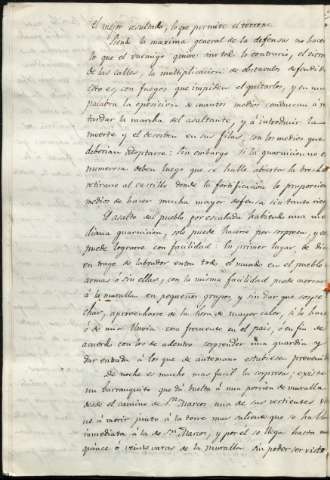 el mejor resultado, lo que permite el terreno.
Siendo la maxima general de la defensa no hacer
lo que el enemigo quiere, sino todo lo contrario, el cierre
de las calles, la multiplicacion de obstaculos defendidos
esto es, con fuegos que impiden el quitarlos, y en una
palabra la oposicion de cuantos medios conducen a re
tardar la marcha del asaltante, y á introducir la
muerte y el desorden en sus filas, son los medios que
deberian adoptarse: sin embargo si la guarnicion no es
numerosa deben luego que se halle abierta la brecha
retirarse al castillo donde la fortificacion le proporciona
medios de hacer mucha mayor defensa sin tanto riesgo
El asalto del pueblo por escalada habiendo una me
diana guarnicion, solo puede hacerse por sorpresa, y es
puede lograrse con facilidad. En primer lugar de dia
en trage de labrador entra todo el mundo en el pueblo
armas ó sin ellas, con la misma facilidad puede acercarse
á la muralla en pequeños grupos, y sin dar que sospe
char, aprovecharse de la hora de mayor calor, á la
ó de una lluvia con frecuente en el pais, ó en fin de
acuerdo con los de adentro sorprender una guardia y
dar entrada á los que de antemano estubiesen prevenidos
De noche es mucho mas facil la sorpresa; existe
un barranquito que dá vuelta á una porcion de muralla
desde el camino de Sn. Marcos una de sus vertientes vie
ne á morir junto á la torre mas saliente que se halla
inmediata á la de Sn. Marcos, y por él se llega hasta
quince ó veinte varas de la muralla sin poder ser visto